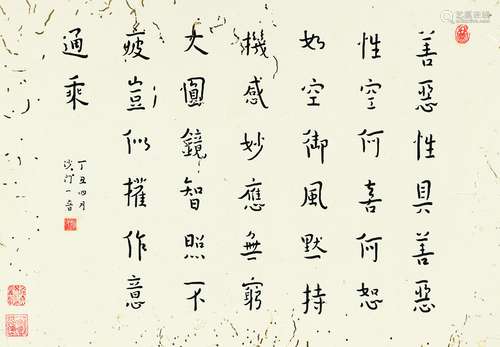 善惡性具善惡
性空何喜何恕
如空御風默持
機感妙應無窮
大圓鏡智照不
疲豈似權作意
通乘
丁丑四月
沙門一音